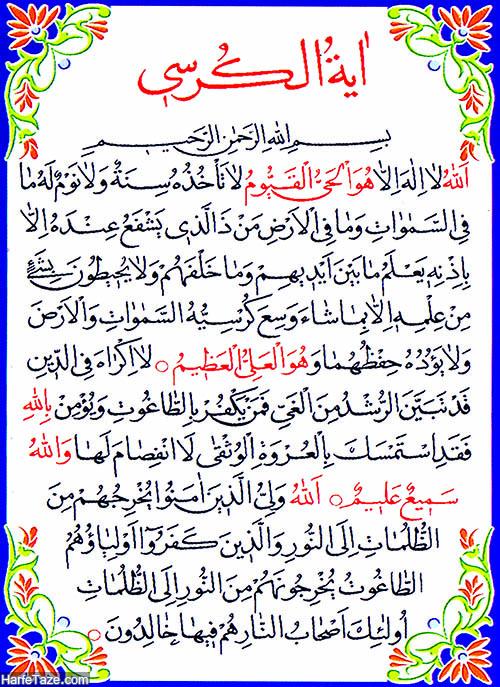 اٰیةُ الکُرسی
بِسمِ اللهِ الرَّحمٰنِ الرَّحیـمِ
اَللهُ لا اِلٰهَ اِلاّٰ هُوَ الْحَیُّ الْقَیُّومُ لا تَأخُذُهُ سِنَةٌ وَلا نَوْمٌ لَهُ مٰا
فِی السَّمٰوٰاتِ وَمٰا فِی الْاَرْضِ مَنْ ذَا الَّذی یَشْفَعُ عِنْدَهُ اِلاّٰ
بِاِذْنِهِ یَعْلَمُ مٰا بَیْنَ اَیْدیهِمْ وَمٰا خَلْفَهُمْ وَلا یُحیطُونَ بِشَیْءٍ
مِنْ عِلْمِهِ اِلاّٰ بِمٰا شٰاءَ وَسِعَ کُرْسِیُّهُ السَّمٰوٰاتِ وَالْاَرْضَ
وَلا یَؤُدُهُ حِفْظُهُمٰا وَ هُوَ الْعَلِیُّ الْعَظیمُ ○ لا اِکْرٰاهَ فِی الدّینِ
قَدْ تَبَیَّنَ الرُّشْدُ مِنَ الْغَیِّ فَمَنْ یَکْفُرْ بِالطّٰاغُوتِ وَ یُؤْمِنْ بِاللهِ
فَقَدِ اسْتَمْسَكَ بِالْعُرْوَةِ الْوُثْقٰی لَا انْفِصٰامَ لَهٰا وَاللهُ
سَمیعٌ عَلیمٌ ○ اَللهُ وَلِیُّ الَّذینَ اٰمَنُوا یُخْرِجُهُمْ مِنَ
الظُّلُمٰاتِ اِلَی النُّورِ وَالَّذینَ کَفَرُوٓا اَوْلِیٰاؤُهُمُ
الطّٰاغُوتُ یُخْرِجُونَهُمْ مِنَ النُّورِ اِلَی الظُّلُمٰاتِ
اُولٰئِكَ اَصْحٰابُ النّٰارِ هُمْ فیهٰا خٰالِدُونَ ○
HarfeTaze.com